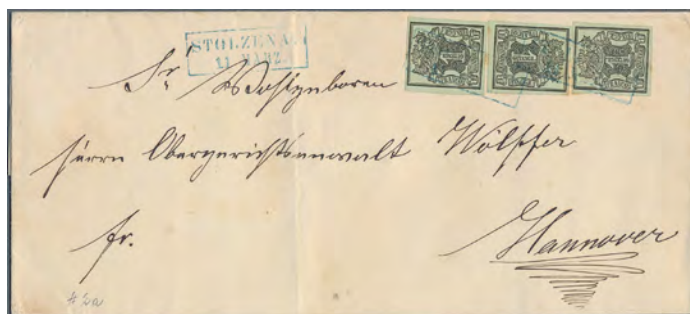 STOLZENA.
11 MÄRZ.
Sr Wohlgeboren
Herrn Obergerichtsanwalt Wölffer
fr.
Hannover
# 2a